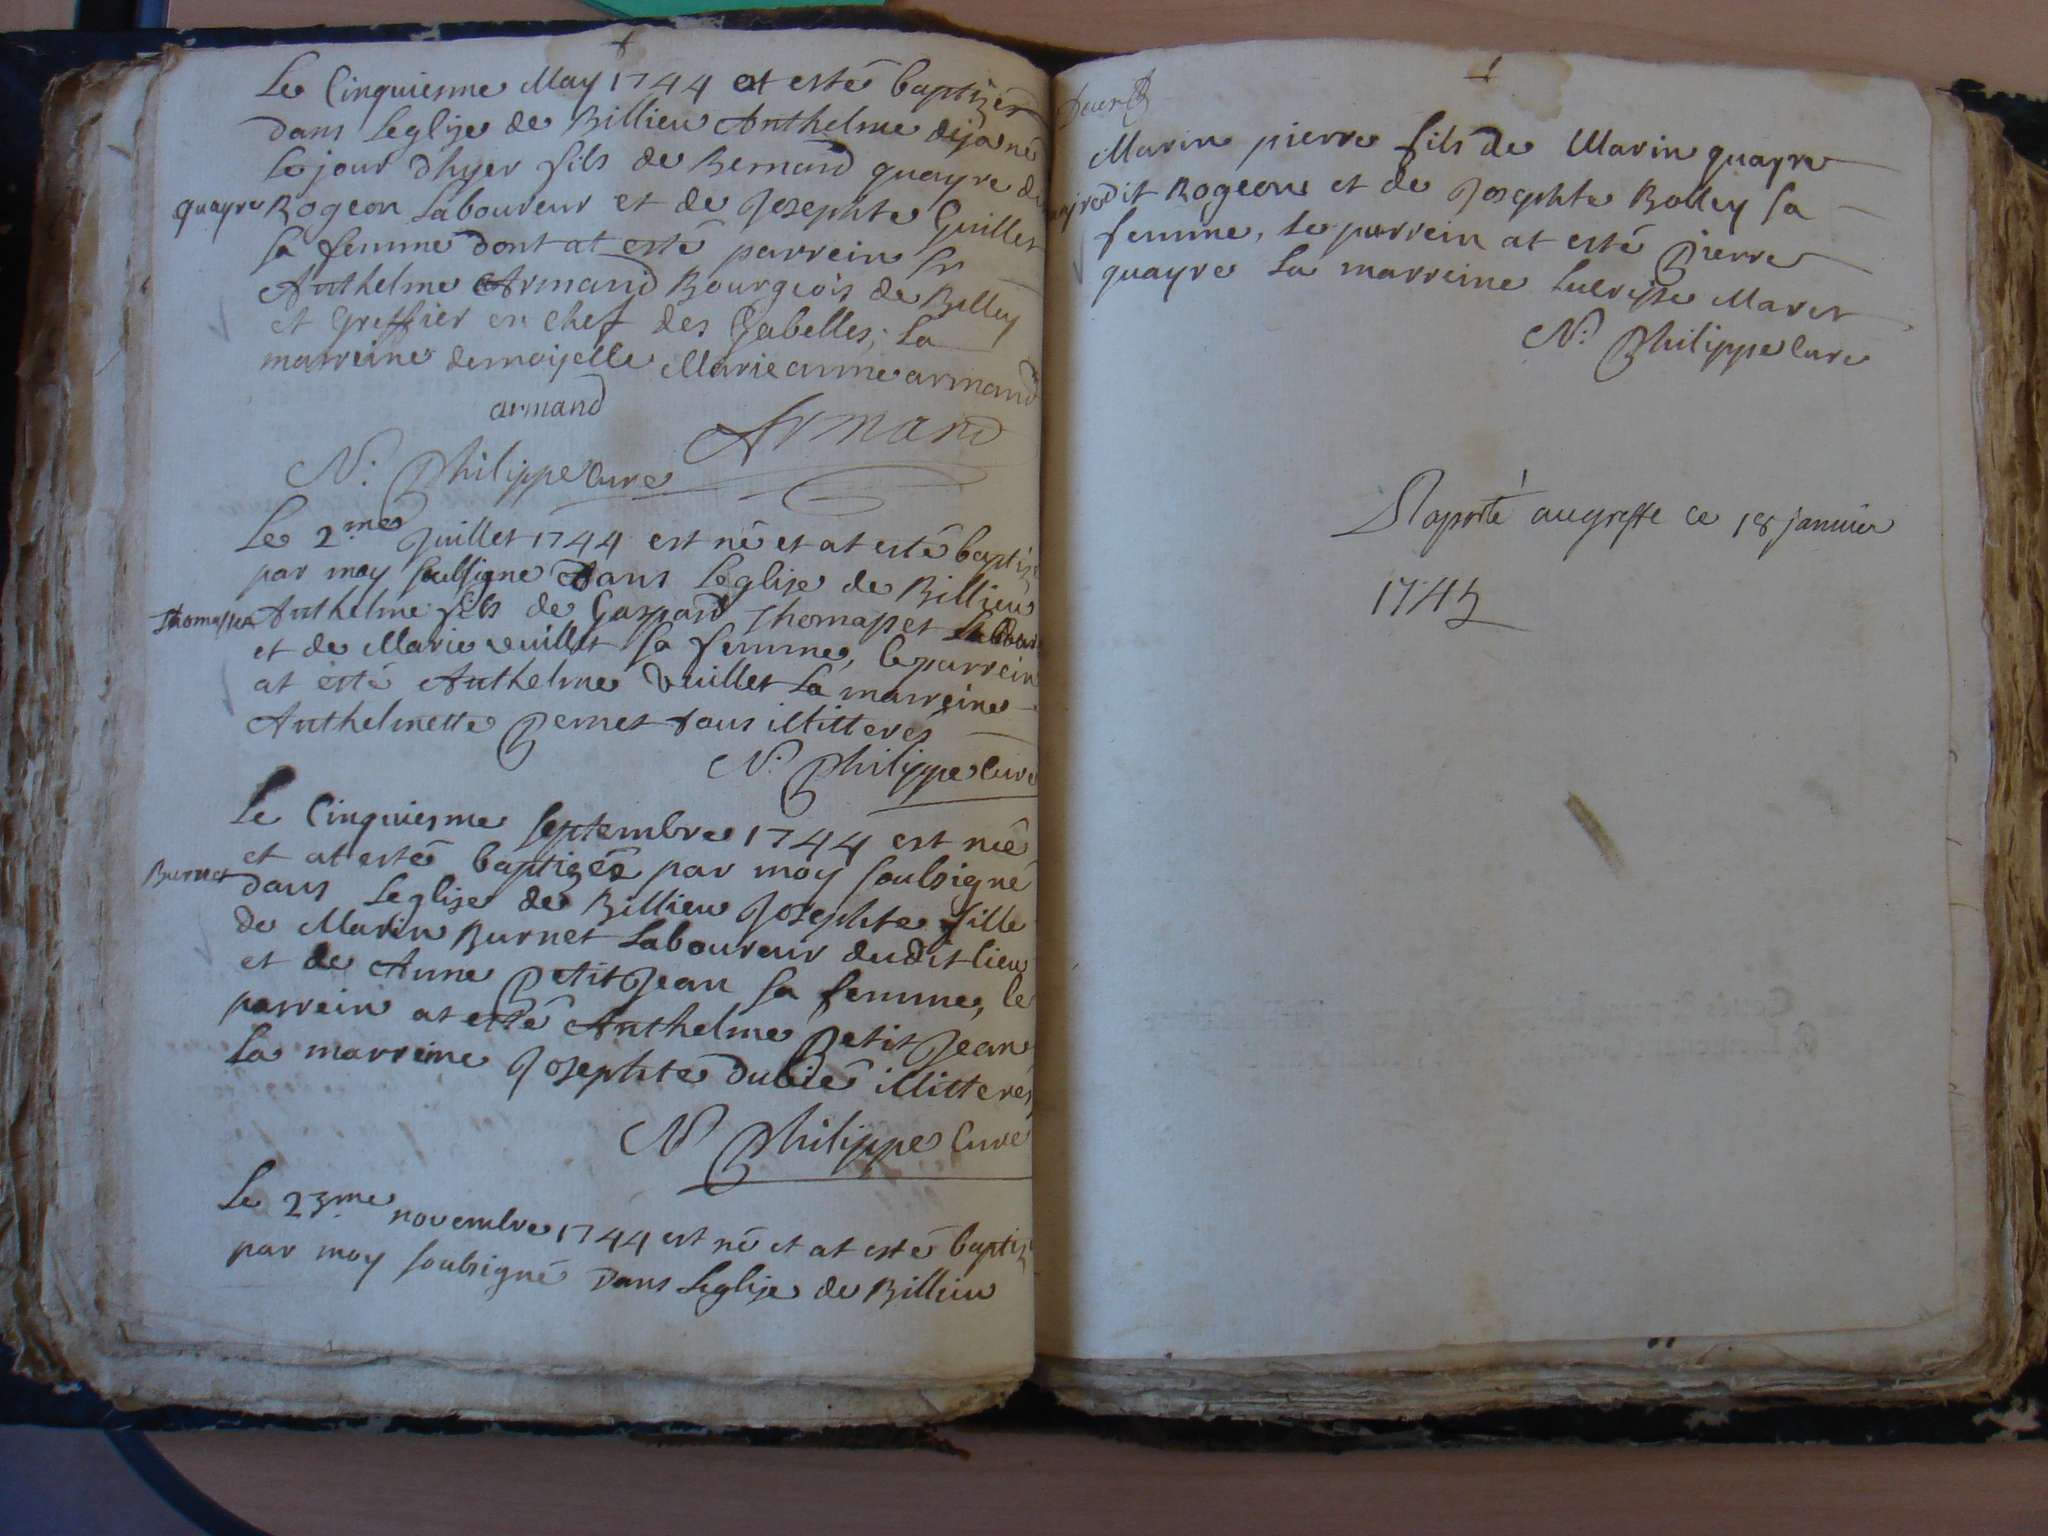 Le Cinquiesme May 1744 at esté baptizés
dans Leglize de Billieu Anthelme deja né
Le jour dhyer fils de Bernard quayre dit
quayre Rogeon Laboureur et de Josephte Guillet
Sa femme dont at esté parrein Sr
Anthelme Armand Bourgeois de Belley
et greffier en chef des Gabelles, La
marreine demoiselle Marieanne armand
armand Armand
N. Philippe Curé
Le 2.me Juillet 1744 est né et at esté baptiz
par moy soulsigne dans Leglise de Billieu
Thomasset Anthelme fils de Gaspard Thomasset
et de Marie veuillet sa femme, le parrein
at esté Anthelme Veuillet La marreine
Anthelmette Pernet tous illitteres
N. Philippe Curé
Le Cinquiesme septembre 1744 est née
et at estée baptizée par moy soulsigné
Burnet dans Leglise de Billieu Josephte fille
de Marin Burnet Laboureur dudit lieu
et de Anne PetitJean sa femme, le
parrein at esté Anthelme PetitJean
La marreine Josephte dubié illitteres
N Philippe Curé
Le 23.me novembre 1744 est né et at esté baptiz
par moy soulsigné Dans Leglise de Billieu
Marin pierre fils de Marin quayre
dit Rogeon et de Josephte Bolley sa
femme, le parrein at esté Pierre
quayre La marreine Maret
N. Philippe Curé
Raporté augreffe ce 18 janvier
1745